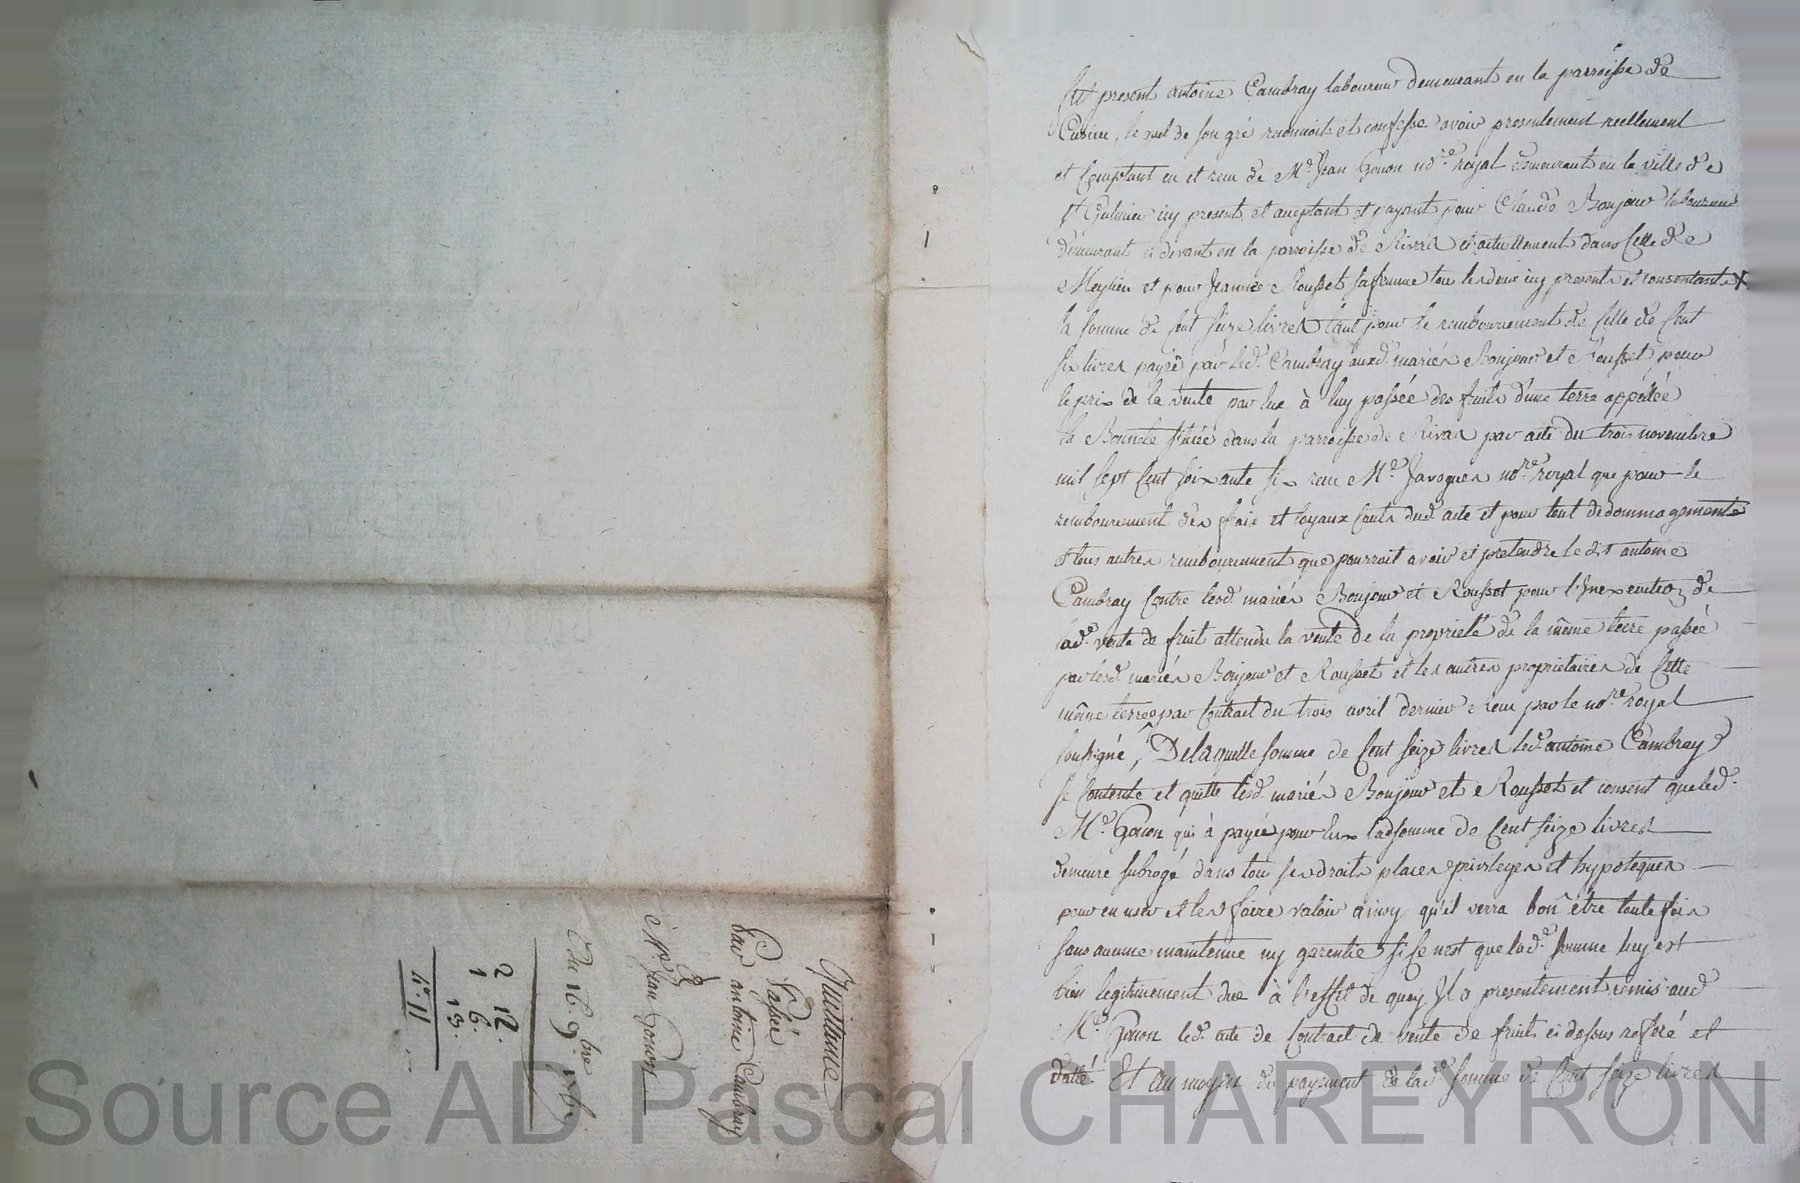 Quittance
Passée
Par antoine Cambray
à
Mr. Jean Gonon
Du 16. 9bre 1767
2 12.
1 6.
13.
4. 11
Fut present antoine Cambray laboureur demeurant en la parroisse de
Cuzieu, lequel de son gré reconnoit et confesse avoir presentement reellement
et Comptant eu et receu de Me. Jean Gonon nore. royal demeurant en la ville de
St Galmier icy present et aceptant et payant pour Claude Bonjour laboureur
demeurant ci devant en la parroisse de Rivas et actuellement dans Celle de
Meylieu et pour Jeanne Rousset sa femme tou les deux icy presents et consentants
la somme de Cent seize livres tant pour le remboursement de Celle de Cent
six livres payée par led. Cambray auxd. mariés Bonjour et Rousset pour
le prix de la vente par eux à luy passée des fruits d'une terre appellée
la situé dans la parroisse de Rivas par acte du trois novembre
mil sept Cent soixante six receu Me. Javogues nore. royal que pour le
remboursement des frais et loyaux Couts dud. acte et pour tout dedommagements
et tous autres remboursement que pourrait avoir et pretendre le dit antoine
Cambray Contre lesd. mariés Bonjour et Rousset pour l'Inexecution de
lade. vente de fruit attendu la vente de la proprieté de la même terre passée
par lesd. mariés Bonjour et Rousset et les autres proprietaires de Cette
même terre par Contrat du trois avril dernier receu par le nore. royal
soussigné, De laquelle somme de Cent seize livres led. antoine Cambray
se Contente et quitte lesd. mariés Bonjour et Rousset et consent que led.
Me. Gonon qui à payée pour Eux lad somme de Cent seize livres
demeure subrogé dans tou ses droits places privileges et hypoteques
pour en user et les faire valoir ainsy qu'il verra bon être toute fois
sans aucune maintenue ny garentie si ce nest que lade. somme luy est
bien legitimement due à l'effet de quoy Il a presentement remis aud
Me. Gonon led. acte de Contract de vente de fruits ci dessus referé et
datté. Et au moyen du payement de lade. somme de Cent seize livres
Source AD Pascal CHAREYRON